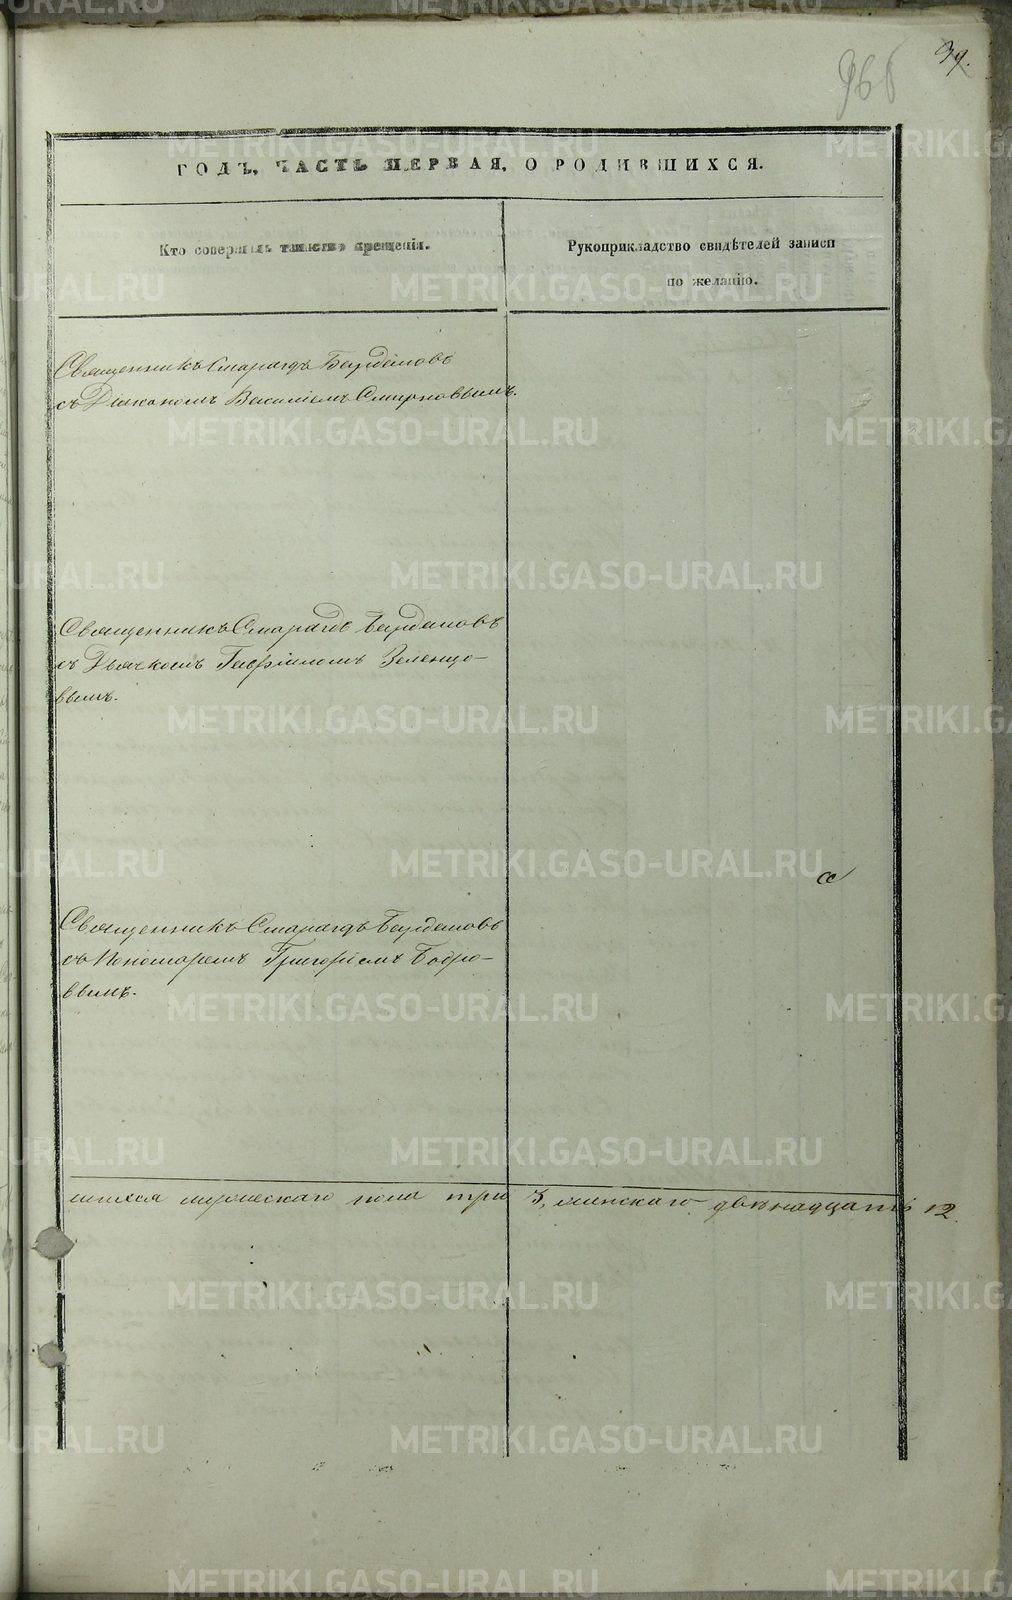 39.
ГОДЪ, ЧАСТЬ ПЕРВАЯ, О РОДИВШИХСЯ.
Кто совершалъ таинство крещенія.
Рукоприкладство свидѣтелей записи
по желанію.
Священникъ Смарагдъ
съ Диакономъ Василіемъ Смирновымъ.
Священникъ Смарагдъ
съ Дьячкомъ Зеленцо-
вымъ.
Священникъ Смарагдъ
съ Пономаремъ Григоріемъ Бобро-
вымъ.
шихся мужескаго пола три 3, женскаго двенадцать 12.
METRIKI.GASO-URAL.RU